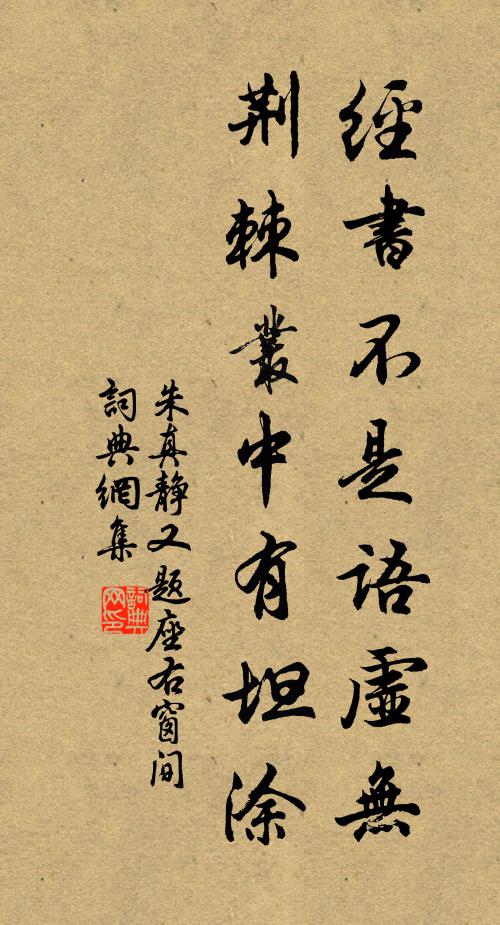 經書不是語虛無
荆棘叢中有坦涂
朱真靜又题座右窗间
詞典網集
詞典网印